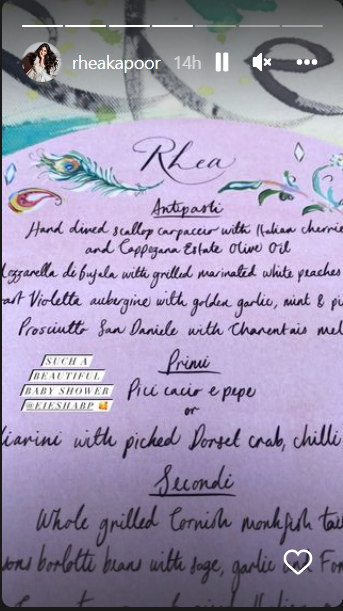 rheakapoor 14h
Rhea
Antipasti
Hand dived scallop carpaccio with Italian cherries
and Cappezana Estate Olive Oil
Mozzarella di bufala with grilled marinated white peaches
Violetta aubergine with golden garlic, mint &
Prosciutto San Daniele with Charentais mel
SUCH A
BEAUTIFUL
BABY SHOWER
@EIESHABP
Primi
Pici cacio e pepe
or
liarini with picked Dorset crab, chilli
Secondi
Whole grilled Cornish monkfish tail
borlotti beans with sage, garlic and